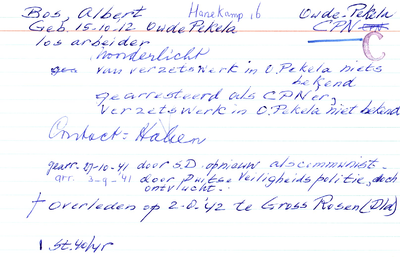 Bos, Albert Hanekamp, 6 Oude-Pekela
Geb. 15-10-12 Oude Pekela CPN
los arbeider C
Noorderlicht
van verzetswerk in O. Pekela niets
bekend
gearresteerd als CPN'er,
verzetswerk in O. Pekela niet bekend
Contact = Haken
gearr. 27-10-41 door S.D. opnieuw als communist -
arr. 3-9-'41 door Duitse Veiligheids politie, doch
ontvlucht.
† overleden op 2-0.'42 te Gross Rosen (Dld)